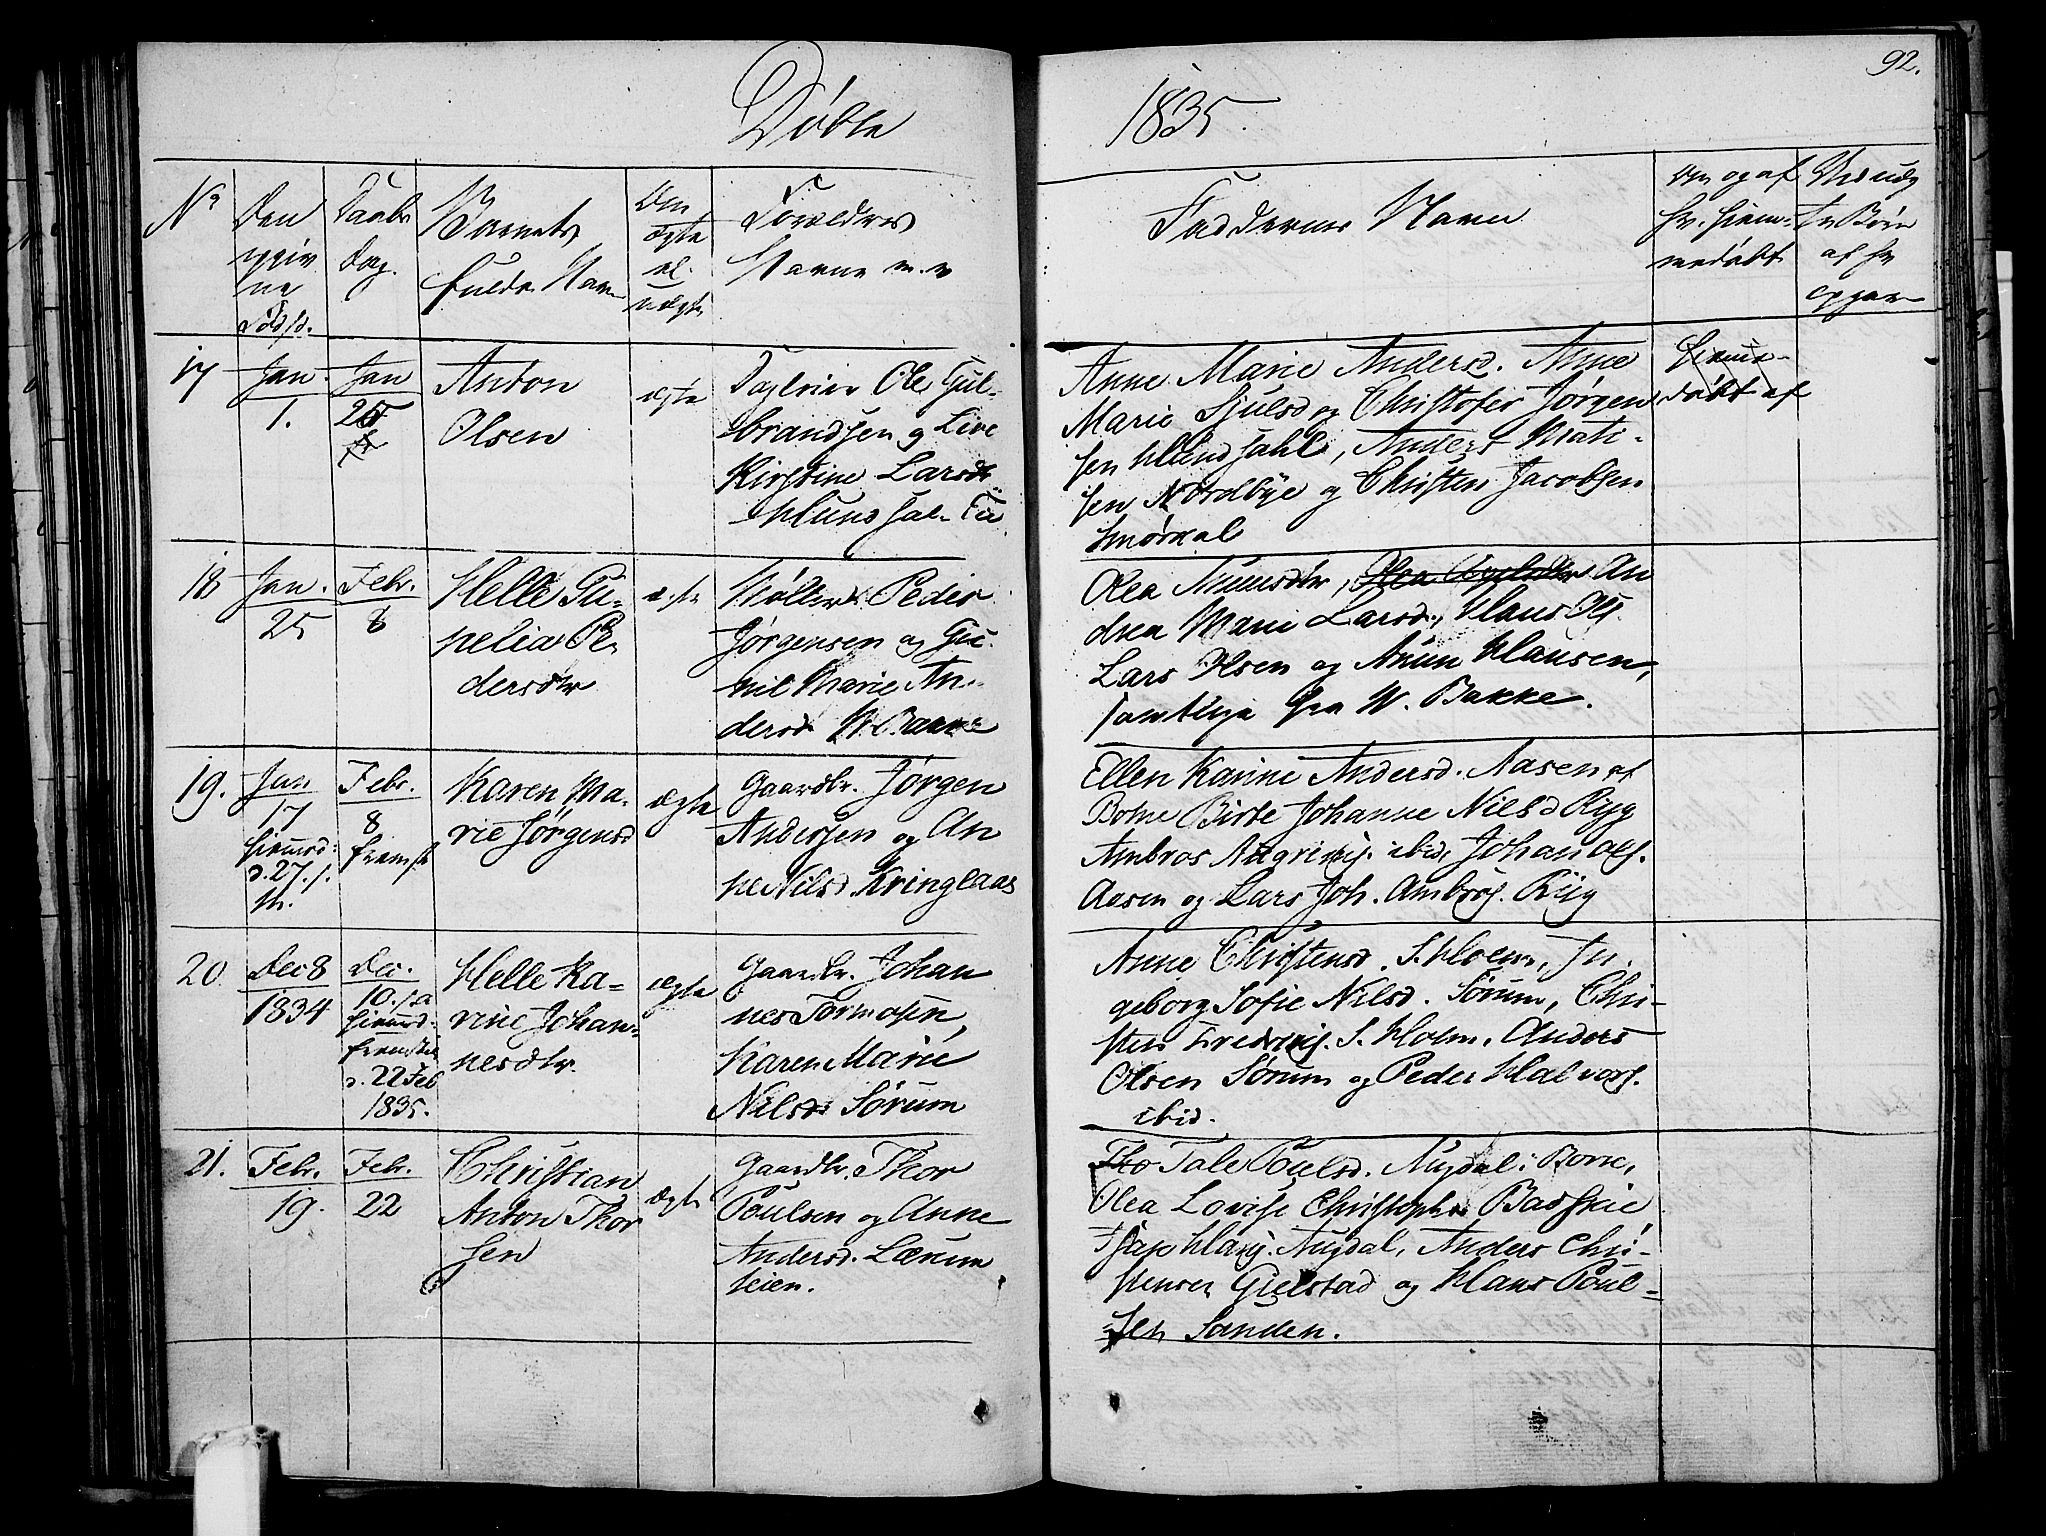 92.
Døbte
1835.
No
Den
opgiv
ne
Føds d.
Daabs
Dag.
Barnets
fulde Navn
Om
ægte
el.
uægte
Forældres
Navne m. v
Faddernes Navn
Om og af
hv. hjem-
medøbt
17
Jan.
1.
Jan
25
Anton
Olsen
ægte
Ole Gul-
brandsen og Live
Kirstine Larsdr.
Anne Marie Andersd. Anne
Marie Sjulsd og Christofer Jørgen
sen Hundsahl, Anders Mati-
sen Nordbye og Christen Jacobsen
Smørkal
hjemme-
døbt af
18
Jan.
25
Febr.
8
Helle Gu-
nelia Pe-
dersdtr
ægte
Peder
Jørgensen og Gu
nil Marie An-
dersd N. Bakke
Olea Amundsdtr, Olea An
drea Marie Larsd., Klaus Ols.
Lars Olsen og Amun Klausen,
samtlige fra N. Bakke.
19.
Jan
17
hjemsd.
d. 27. s.
M.
Febr.
8
fremst
Karen Ma-
rie Jørgensd
ægte
Gaardbr. Jørgen
Andersen og An
ne Nilsd. Kringlaas
Ellen Karine Andersd. Aasen af
Botne Birte Johanne Nielsd Ryg
Ambros ibid, Johan Ols.
Aasen og Lars Joh. Ambros. Ryg
20.
Dec 8
1834
Dec.
10. s. a
hjemd.
fremstil
d. 22 Feb
1835.
Helle Ka-
rine Johan-
nesdtr.
ægte
Gaardbr. Johan
nes Tormosen,
Karen Marie
Nilsd Sørum
Anne Christensd. S. Holm, In
geborg Sofie Nilsd. Sørum, Chri-
sten Fredriks. S. Holm, Anders
Olsen Sørum og Peder Halvors.
ibid.
21.
Febr.
19.
Febr.
22
Christian
Anton Thor
sen
ægte
Gaardbr. Thor
Poulsen og Anne
Andersd. Lærum
seien.
Tho Tale Poulsd. Augdal i Borre,
Olea Lovise Christophd. Badskie
Hans. Augdal, Anders Chri-
stensen Gjelstad og Hans Poul-
sen Sanden.